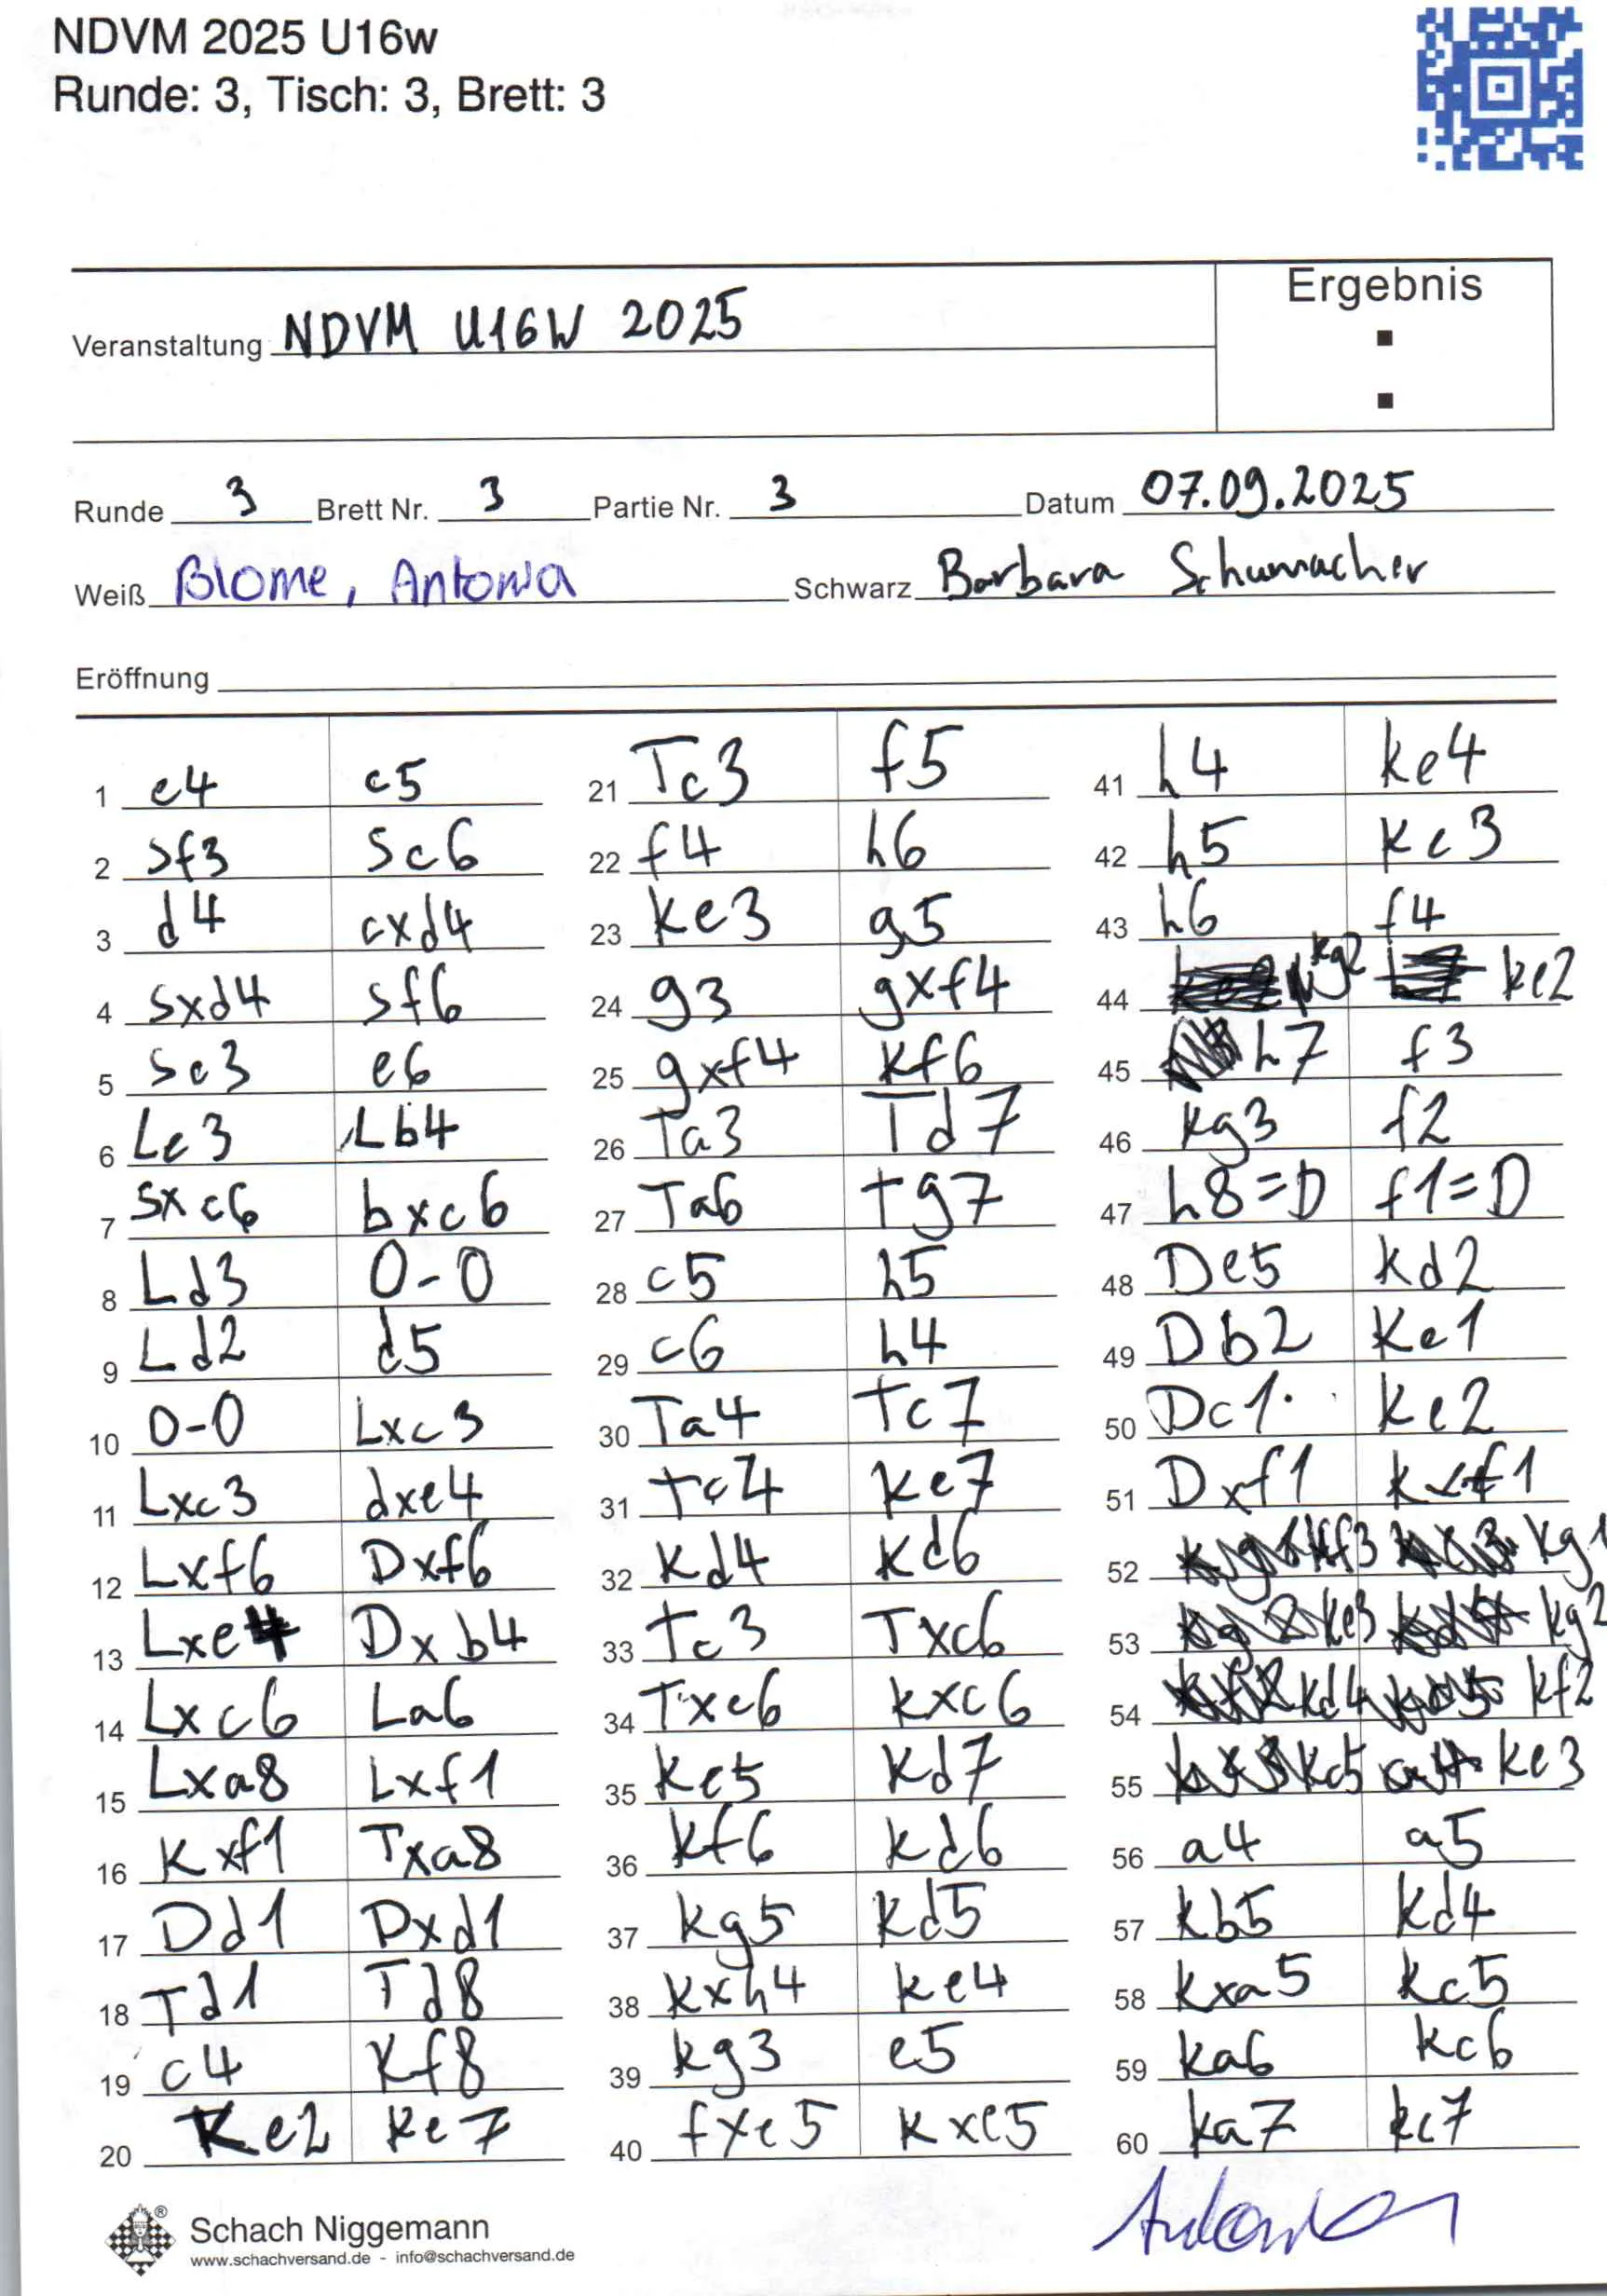 NDVM 2025 U16w
Runde: 3, Tisch: 3, Brett: 3
Ergebnis
Veranstaltung NDVM U16W 2025
:
Runde 3 Brett Nr. 3 Partie Nr. 3 Datum 07.09.2025
Weiß Blome, Antonia Schwarz Barbara Schumacher
Eröffnung
1 e4 c5
2 Sf3 Sc6
3 d4 cxd4
4 Sxd4 Sf6
5 Sc3 e6
6 Le3 Lb4
7 Sxc6 bxc6
8 Ld3 0-0
9 Ld2 d5
10 0-0 Lxc3
11 Lxc3 dxe4
12 Lxf6 Dxf6
13 Lxe4 Dxb4
14 Lxc6 La6
15 Lxa8 Lxf1
16 Kxf1 Txa8
17 Dd1 Dxd1
18 Td1 Td8
19 c4 Kf8
20 Ke2 Ke7
21 Tc3 f5
22 f4 h6
23 Ke3 g5
24 g3 gxf4
25 gxf4 Kf6
26 Ta3 Td7
27 Ta6 Tg7
28 c5 h5
29 c6 h4
30 Ta4 Tc7
31 Tc4 Ke7
32 Kd4 Kd6
33 Tc3 Txc6
34 Txc6 Kxc6
35 Ke5 Kd7
36 Kf6 Kd6
37 Kg5 Kd5
38 Kxh4 Ke4
39 Kg3 e5
40 fxe5 Kxe5
41 h4 Ke4
42 h5 Ke3
43 h6 f4
44 Kg2 Ke2
45 h7 f3
46 Kg3 f2
47 h8=D f1=D
48 De5 Kd2
49 Db2 Ke1
50 Dc1 Ke2
51 Dxf1 Kxf1
52 Kf3 Kg1
53 Ke3 Kg2
54 Kd4 Kf2
55 Kc5 Ke3
56 a4 a5
57 Kb5 Kd4
58 Kxa5 Kc5
59 Ka6 Kc6
60 Ka7 Kc7
Schach Niggemann
www.schachversand.de - info@schachversand.de